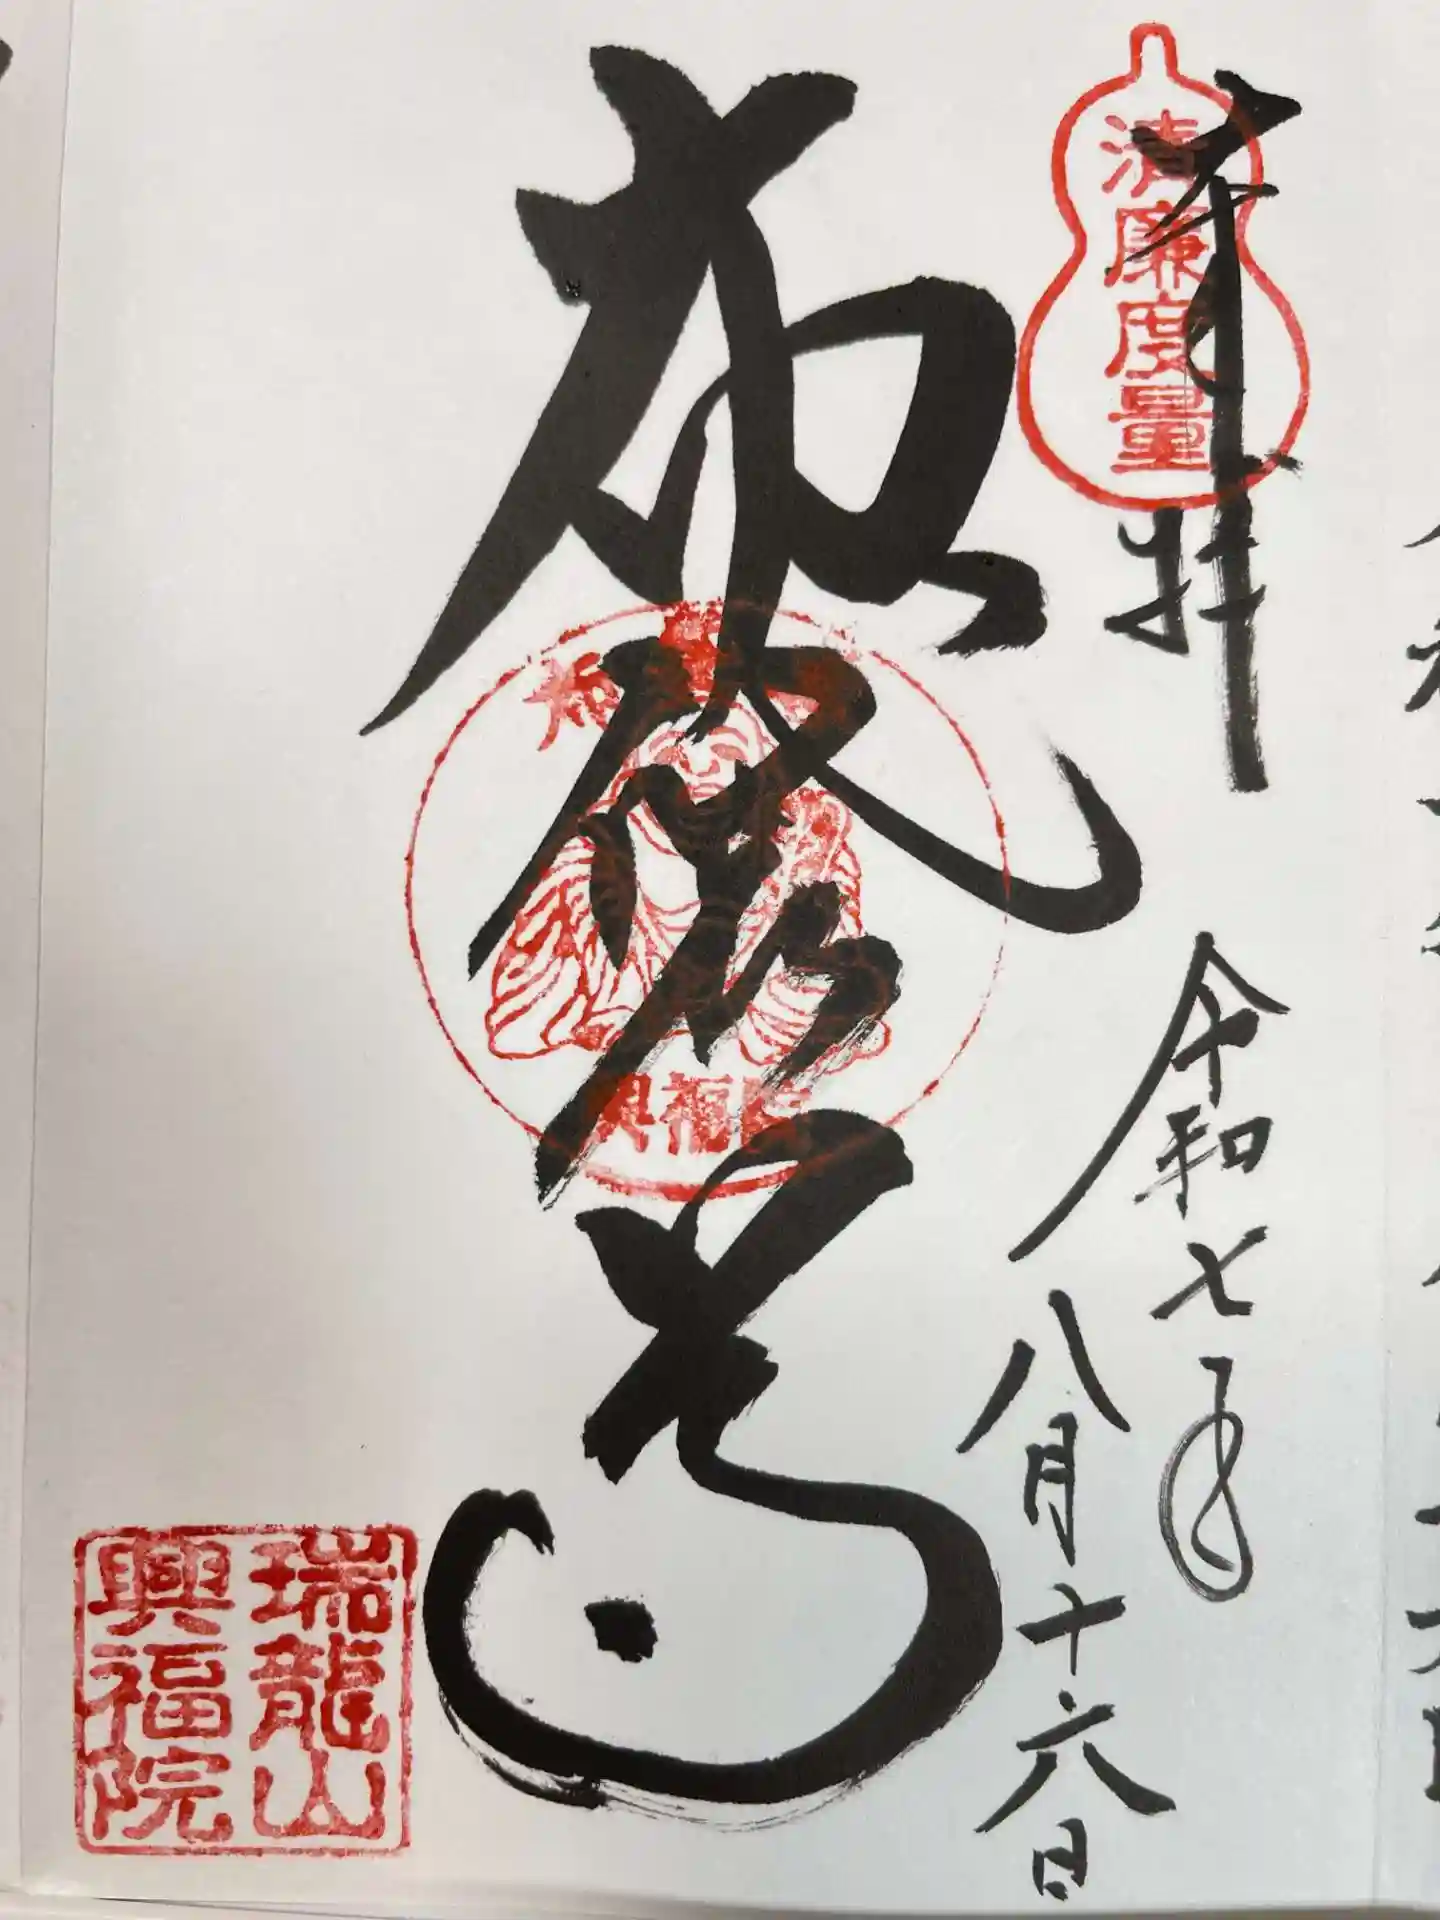 奉拝
清廉度量
令和七年
八月十六日
布袋尊
興福院
瑞龍山
興福院